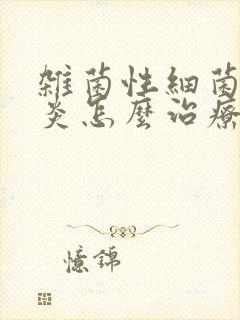 雜菌性細菌
炎怎麼治療
憶錦